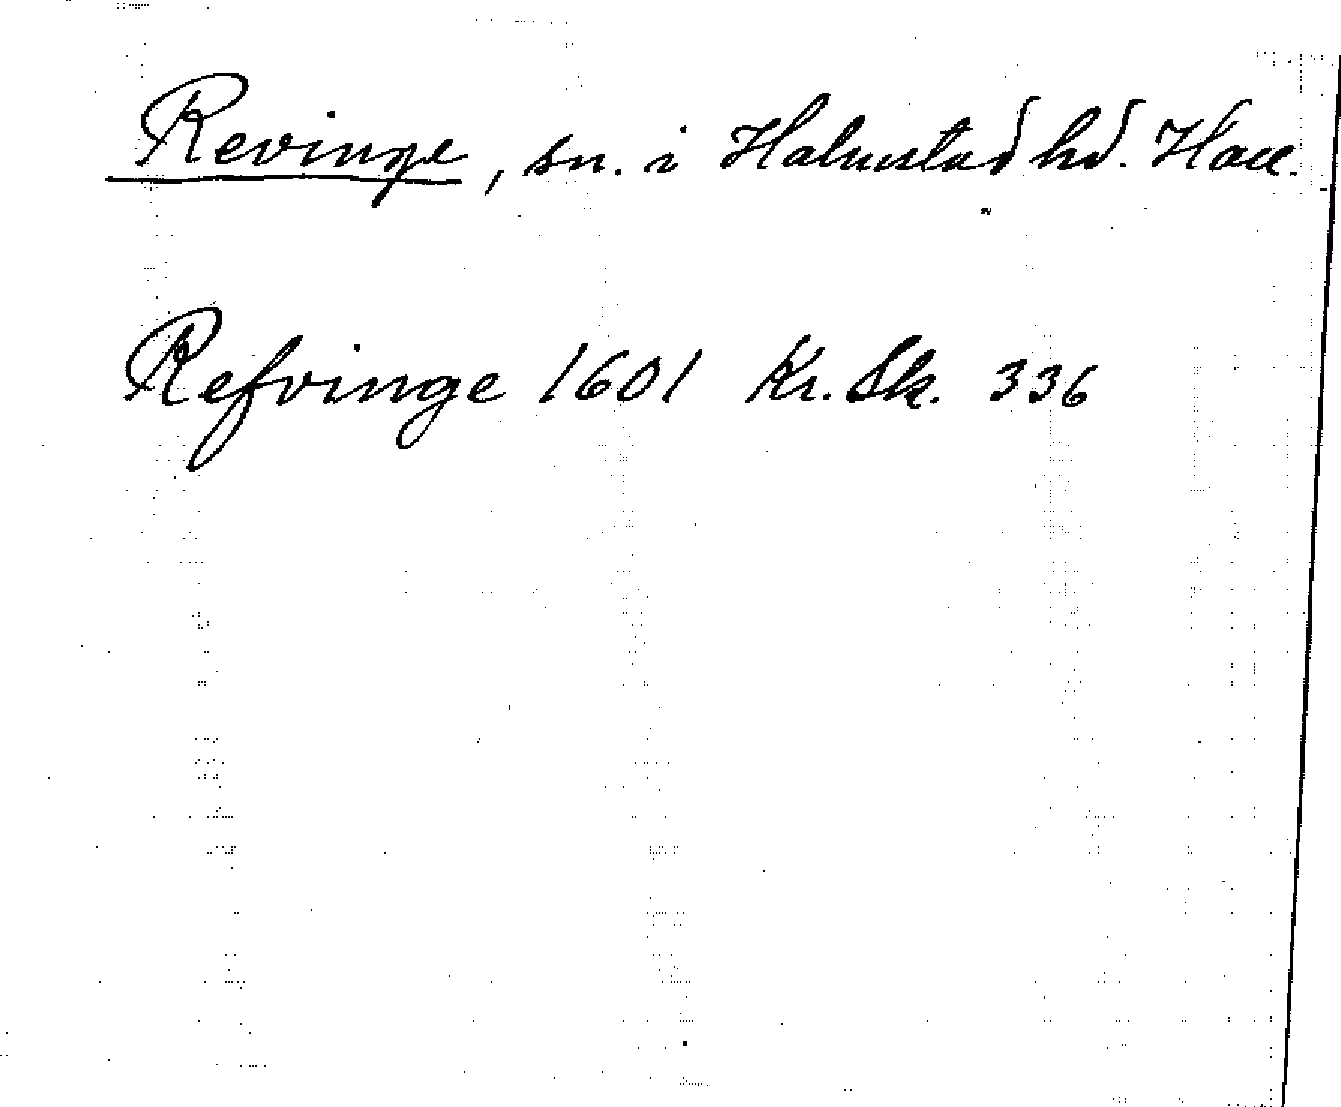 Revinge, sn. i Halmstad hd. Hall.
Refvinge 1601 Kr. Sk. 336